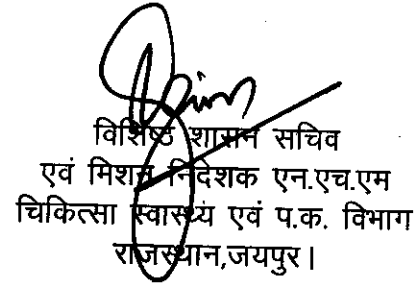 विशिष्ठ शासन सचिव
एवं मिशन निदेशक एन.एच.एम
चिकित्सा स्वास्थ्य एवं प.क. विभाग
राजस्थान,जयपुर।